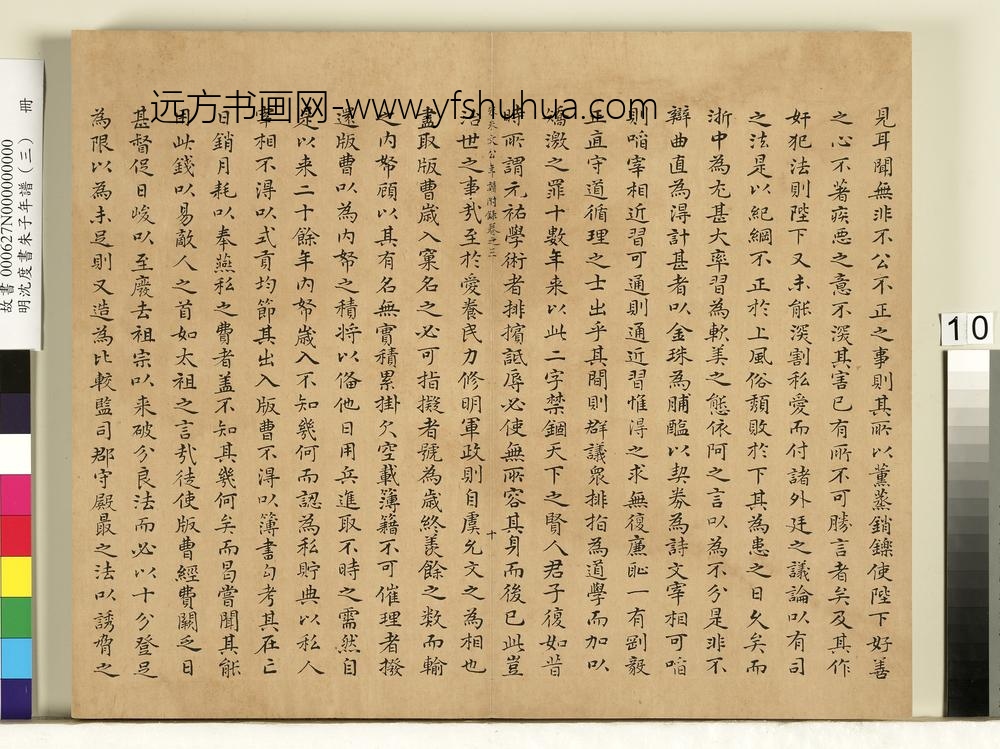 远方书画网-www.yfshuhua.com
見耳聞無非不公不正之事則其所以薰蒸銷鑠使陛下好善
之心不著疾惡之意不深其害已有所不可勝言者矣及其作
奸犯法則陛下又未能深割私愛而付諸外廷之議論以有司
之法是以紀綱不正於上風俗頹敗於下其為患之日久矣而
浙中為尤甚大率習為軟美之態依阿之言以為不分是非不
辯曲直為得計甚者以金珠為脯醢以契券為詩文宰相可啗
則啗宰相近習可通則通近習惟得之求無復廉恥一有剛毅
正直守道循理之士出乎其間則群議衆排指為道學而加以
矯激之罪十數年來以此二字禁錮天下之賢人君子復如昔
時所謂元祐學術者排擯詆辱必使無所容其身而後已此豈
朱文公年譜附錄卷之三
十
治世之事哉至於愛養民力修明軍政則自虞允文之為相也
盡取版曹歲入窠名之必可指擬者號為歲終羨餘之數而輸
之內帑顧以其有名無實積累掛欠空載簿籍不可催理者撥
還版曹以為內帑之積將以偹他日用兵進取不時之需然自
是以来二十餘年內帑歲入不知幾何而認為私貯典以私人
宰相不得以式貢均節其出入版曹不得以簿書勾考其在亡
日銷月耗以奉燕私之費者盖不知其幾何矣而曷嘗聞其能
用此錢以易敵人之首如太祖之言哉徒使版曹經費闕乏日
甚督促日峻以至廢去祖宗以来破分良法而必以十分登足
為限以為未足則又造為比較監司郡守殿最之法以誘脅之
故書000627N000000000
明沈度書朱子年譜(三) 冊
10